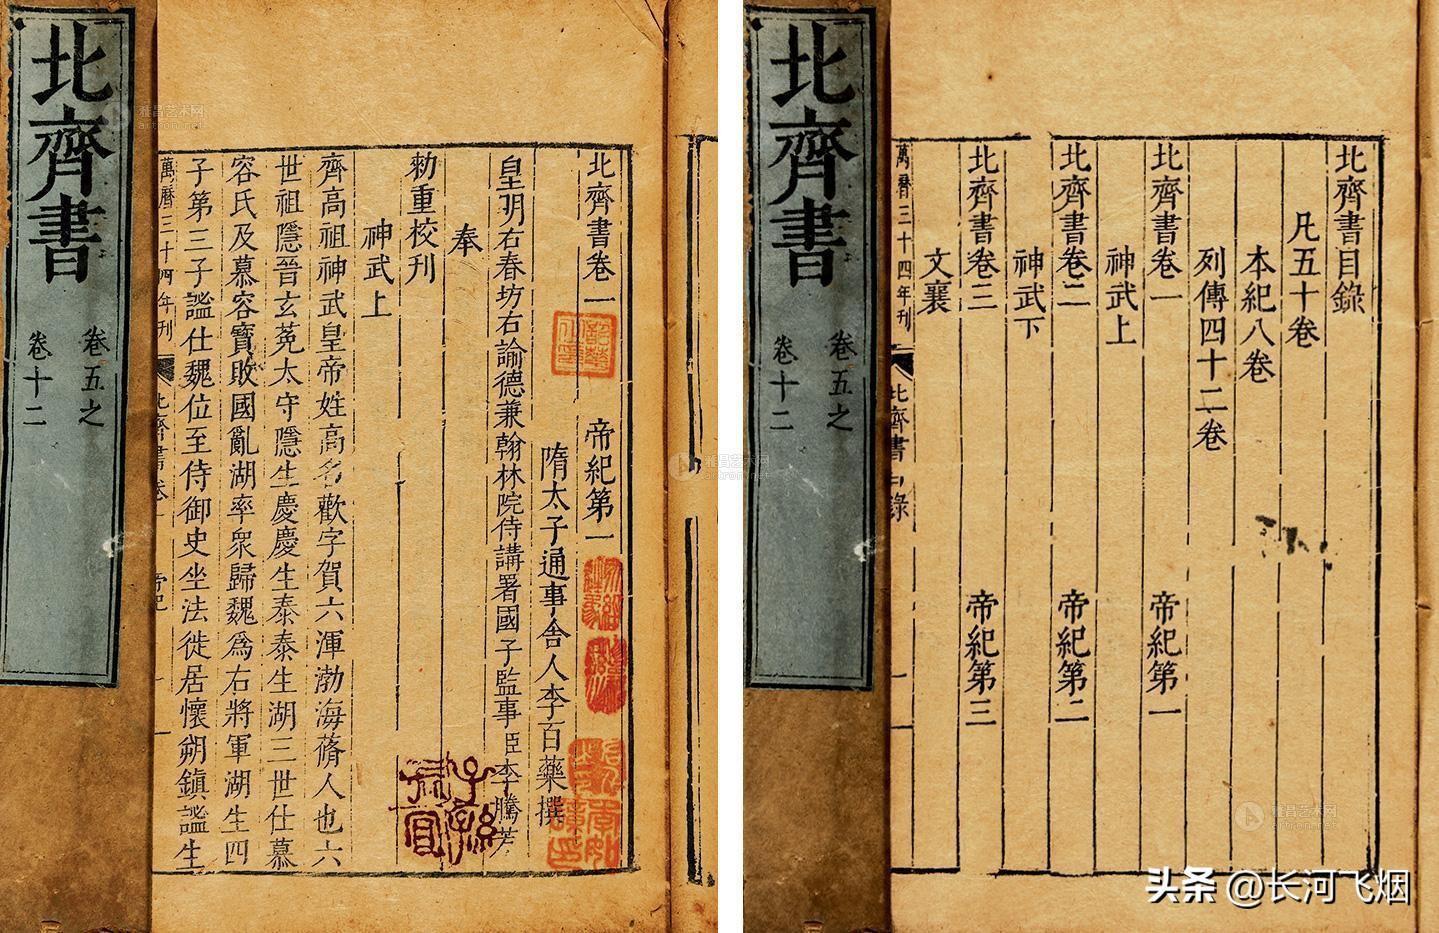 北齊書
卷五之
卷十二
北齊書卷一 帝紀第一
隋太子通事舍人李百藥撰
皇明右春坊右諭德兼翰林院侍講署國子監事臣李騰芳
奉
勑重校刊
神武上
齊高祖神武皇帝姓高名歡字賀六渾渤海蓨人也六
世祖隱晉玄菟太守隱生慶慶生泰泰生湖三世仕慕
容氏及慕容寶敗國亂湖率衆歸魏爲右將軍湖生四
子第三子謐仕魏位至侍御史坐法徙居懷朔鎮謐生
萬曆三十四年刊
北齊書卷一 帝紀 一
北齊書
卷五之
卷十二
北齊書目錄
凡五十卷
本紀八卷
列傳四十二卷
北齊書卷一 帝紀第一
神武上
北齊書卷二 帝紀第二
神武下
北齊書卷三 帝紀第三
文襄
萬曆三十四年刊
北齊書目錄 一
雅昌艺术网
artron.net
雅昌艺术网
artron.net
雅昌艺术网
artron.net
头条 @长河飞烟